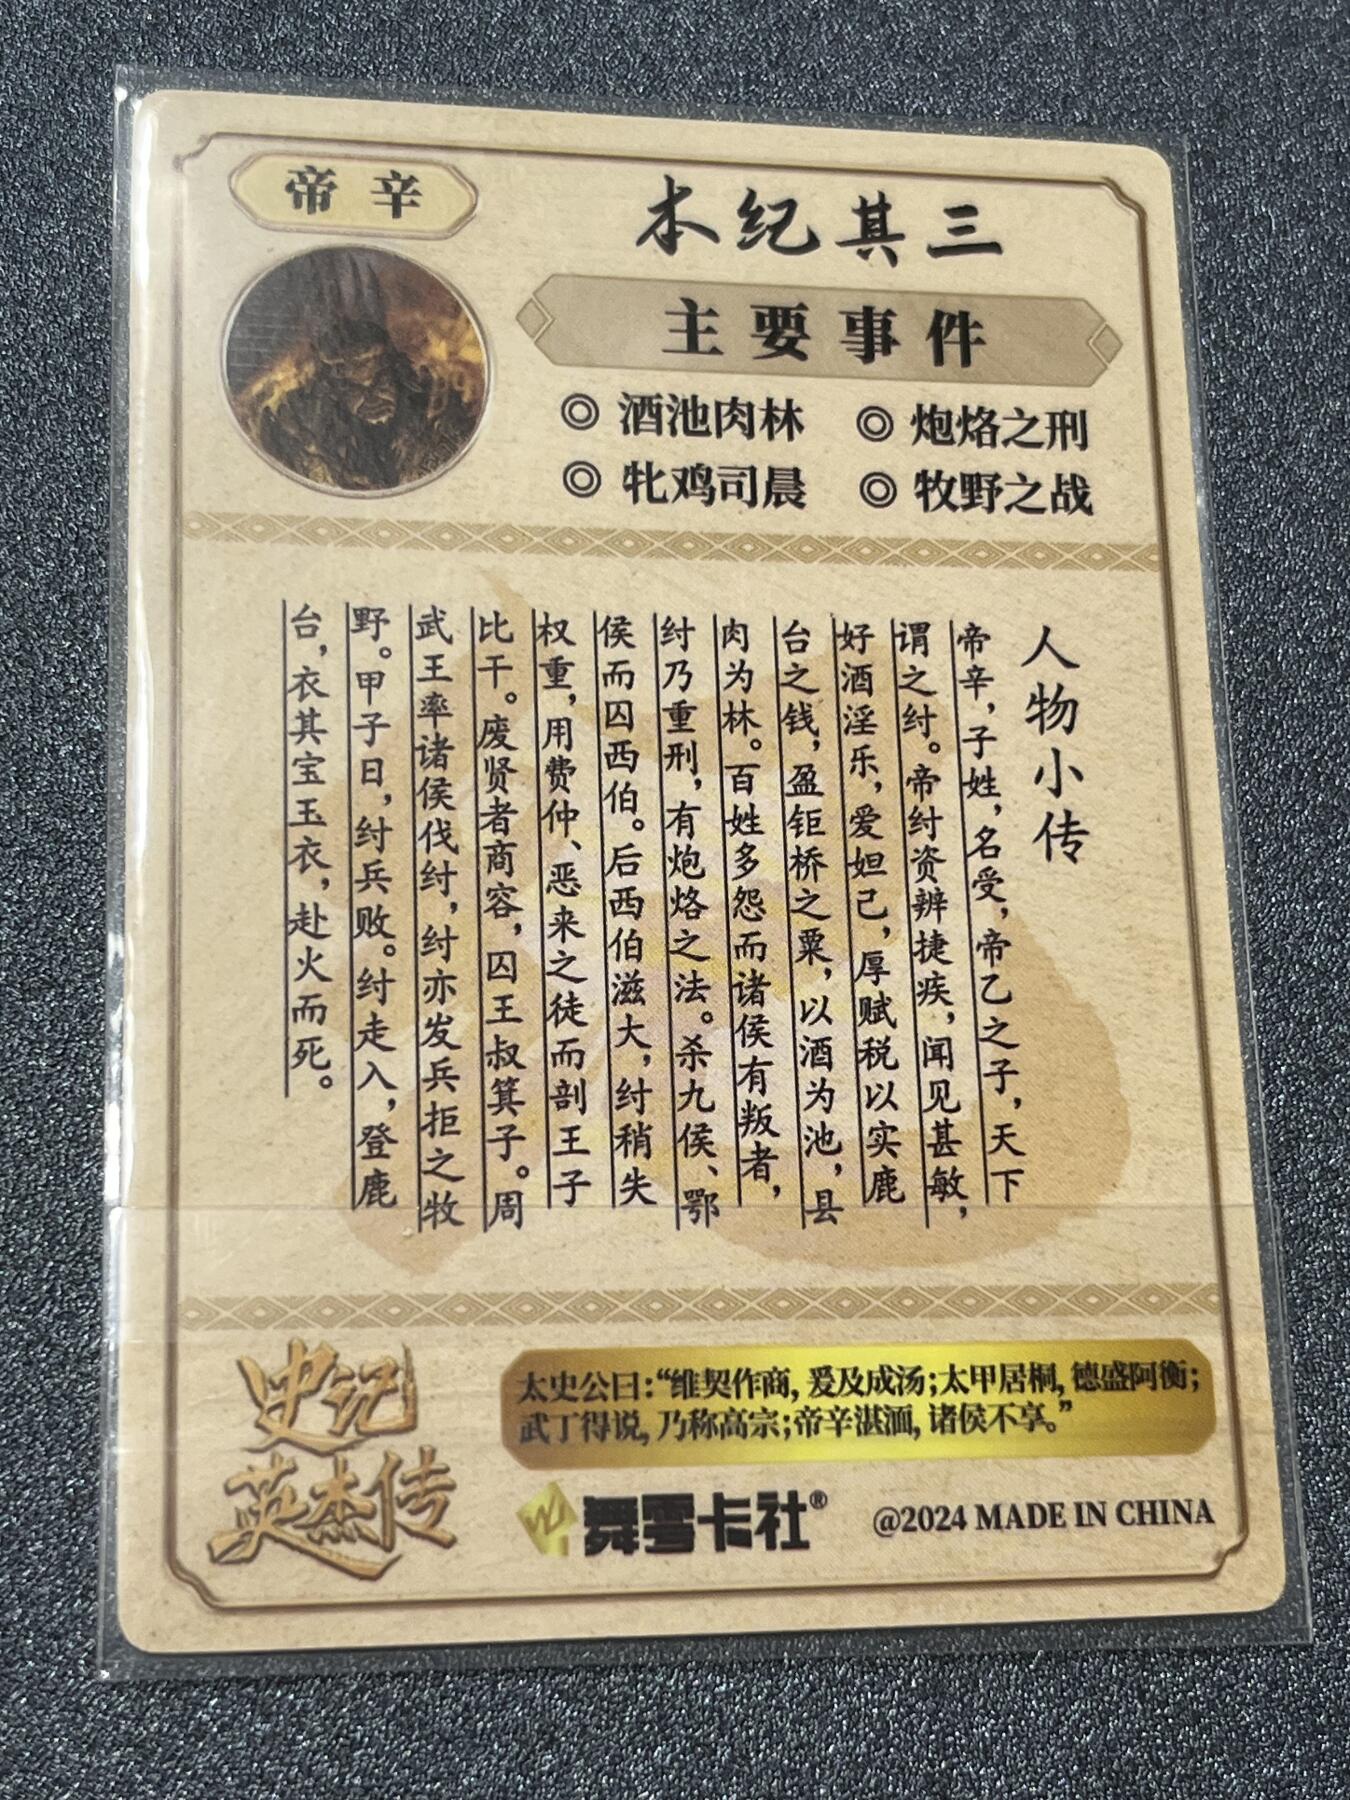 帝辛
本纪其三
主要事件
◎ 酒池肉林 ◎ 炮烙之刑
◎ 牝鸡司晨 ◎ 牧野之战
人物小传
帝辛，子姓，名受，帝乙之子，天下
谓之纣。帝纣资辨捷疾，闻见甚敏，
好酒淫乐，爱妲己，厚赋税以实鹿
台之钱，盈钜桥之粟，以酒为池，县
肉为林。百姓多怨而诸侯有叛者，
纣乃重刑，有炮烙之法。杀九侯、鄂
侯而囚西伯。后西伯滋大，纣稍失
权重，用费仲、恶来之徒而剖王子
比干。废贤者商容，囚王叔箕子。周
武王率诸侯伐纣，纣亦发兵拒之牧
野。甲子日，纣兵败。纣走入，登鹿
台，衣其宝玉衣，赴火而死。
史记
英杰传
太史公曰：“维契作商，爰及成汤；太甲居桐，德盛阿衡；
武丁得说，乃称高宗；帝辛湛湎，诸侯不享。”
舞雩卡社® @2024 MADE IN CHINA